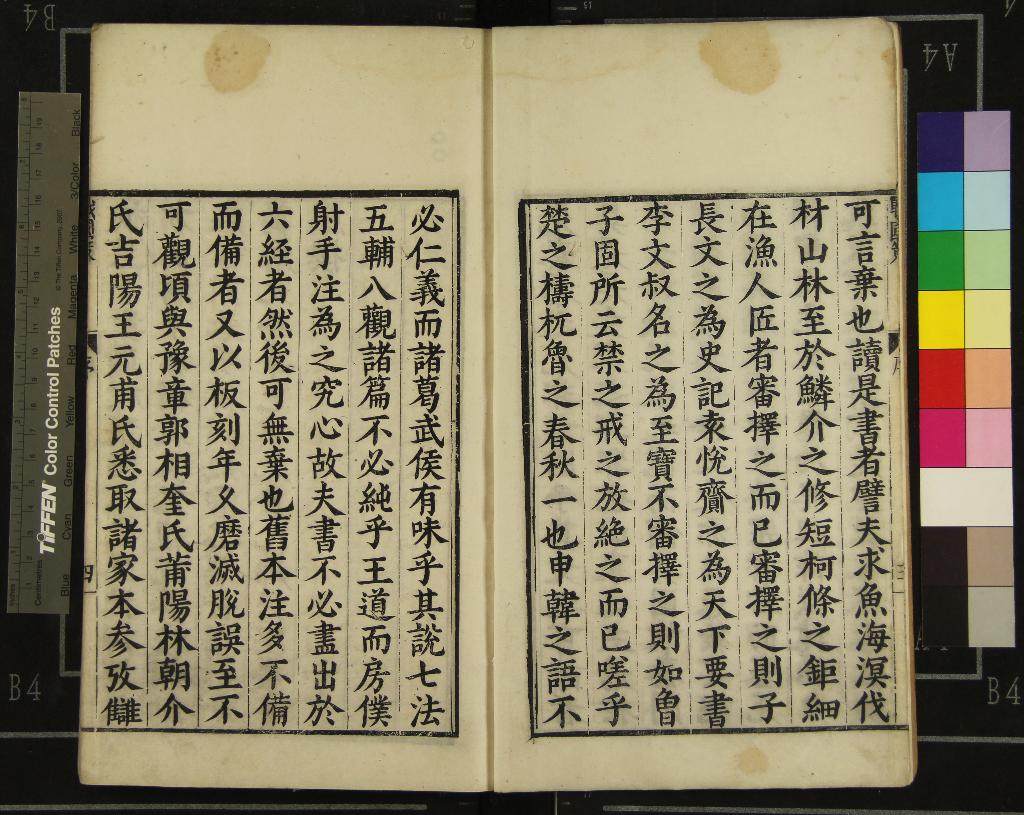 可言棄也讀是書者譬夫求魚海溟伐
材山林至於鱗介之修短柯條之鉅細
在漁人匠者審擇之而已審擇之則子
長文之為史記袁悅齎之為天下要書
李文叔名之為至寶不審擇之則如曾
子固所云禁之戒之放絶之而已嗟乎
楚之檮杌魯之春秋一也申韓之語不
必仁義而諸葛武侯有味乎其說七法
五輔八觀諸篇不必純乎王道而房僕
射手注為之究心故夫書不必盡出於
六經者然後可無棄也舊本注多不備
而備者又以板刻年久磨滅脫誤至不
可觀頃與豫章郭相奎氏莆陽林朝介
氏吉陽王元甫氏悉取諸家本參攷讎
序
四
三
TIFFEN Color Control Patches
© The Tiffen Company, 2007
Blue
Cyan
Green
Yellow
Red
Magenta
White
3/Color
Black
Centimetres
Inches
B4
A4
B4
B4